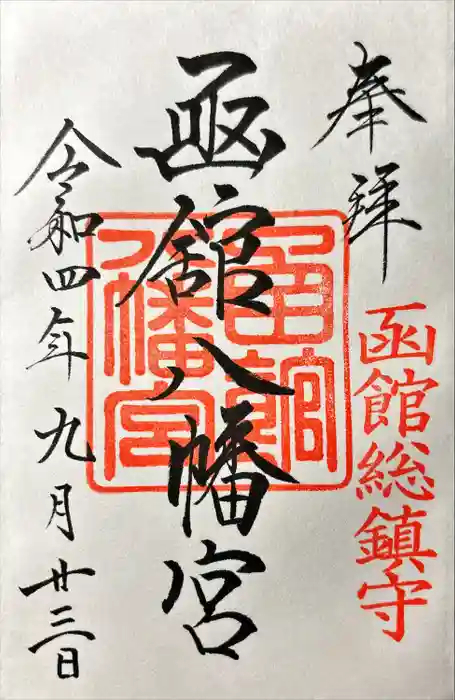 奉拝
函館総鎮守
函館八幡宮
函館
八幡宮
令和四年九月廿三日